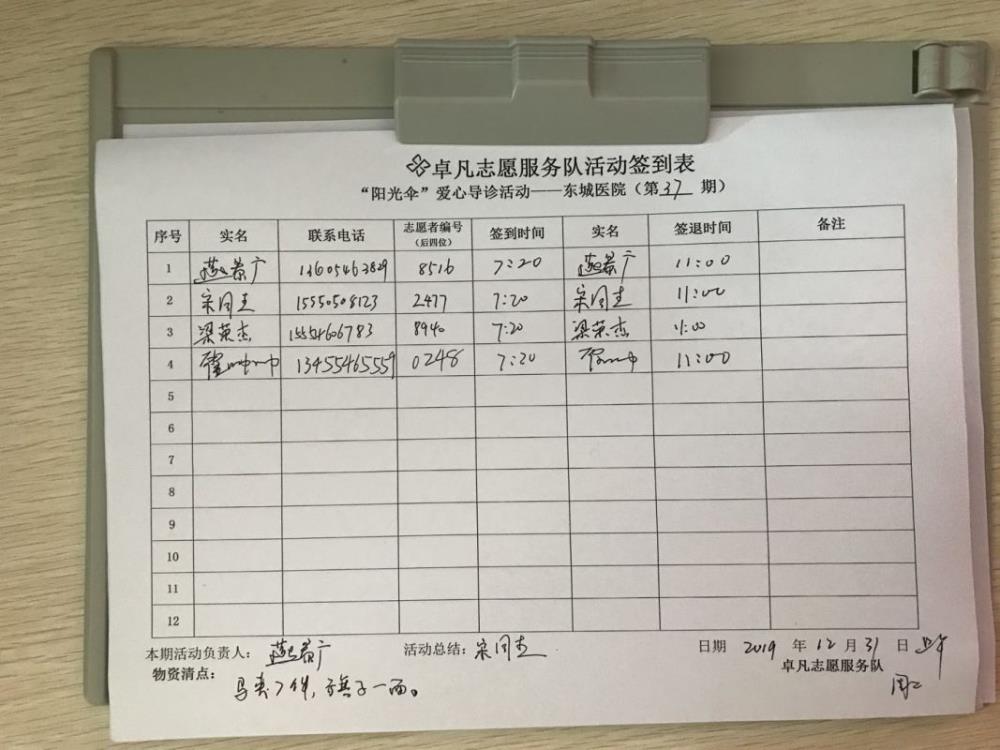 卓凡志愿服务队活动签到表
“阳光伞”爱心导诊活动——东城医院（第37期）
序号 实名 联系电话 志愿者编号（后四位） 签到时间 实名 签退时间 备注
1 燕景广 13605463829 8516 7:20 燕景广 11:00
2 宋同志 15550508123 2477 7:20 宋同志 11:00
3 梁英杰 15554606783 8940 7:20 梁英杰 11:00
4 13455465559 0248 7:20 11:00
5
6
7
8
9
10
11
12
本期活动负责人： 燕景广 活动总结： 宋同志 日期 2019 年 12 月 31 日 上午
物资清点： 马夹7件，旗子一面。 卓凡志愿服务队
周二